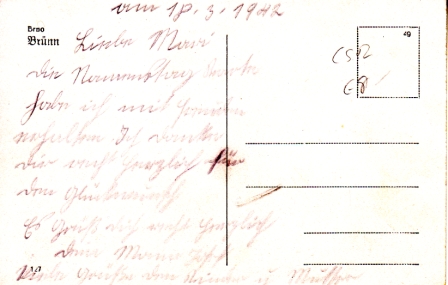 am 18.3.1942
Brno
Brünn
Liebe Mari
49
die Namenstag Karte
ČSR
habe ich mit Freuden
erhalten Ich danke
dir recht herzlich für
den Glückwunsch
Es Grüß dich recht herzlich
dein Mann
viele Grüße den Kinder u Mutter